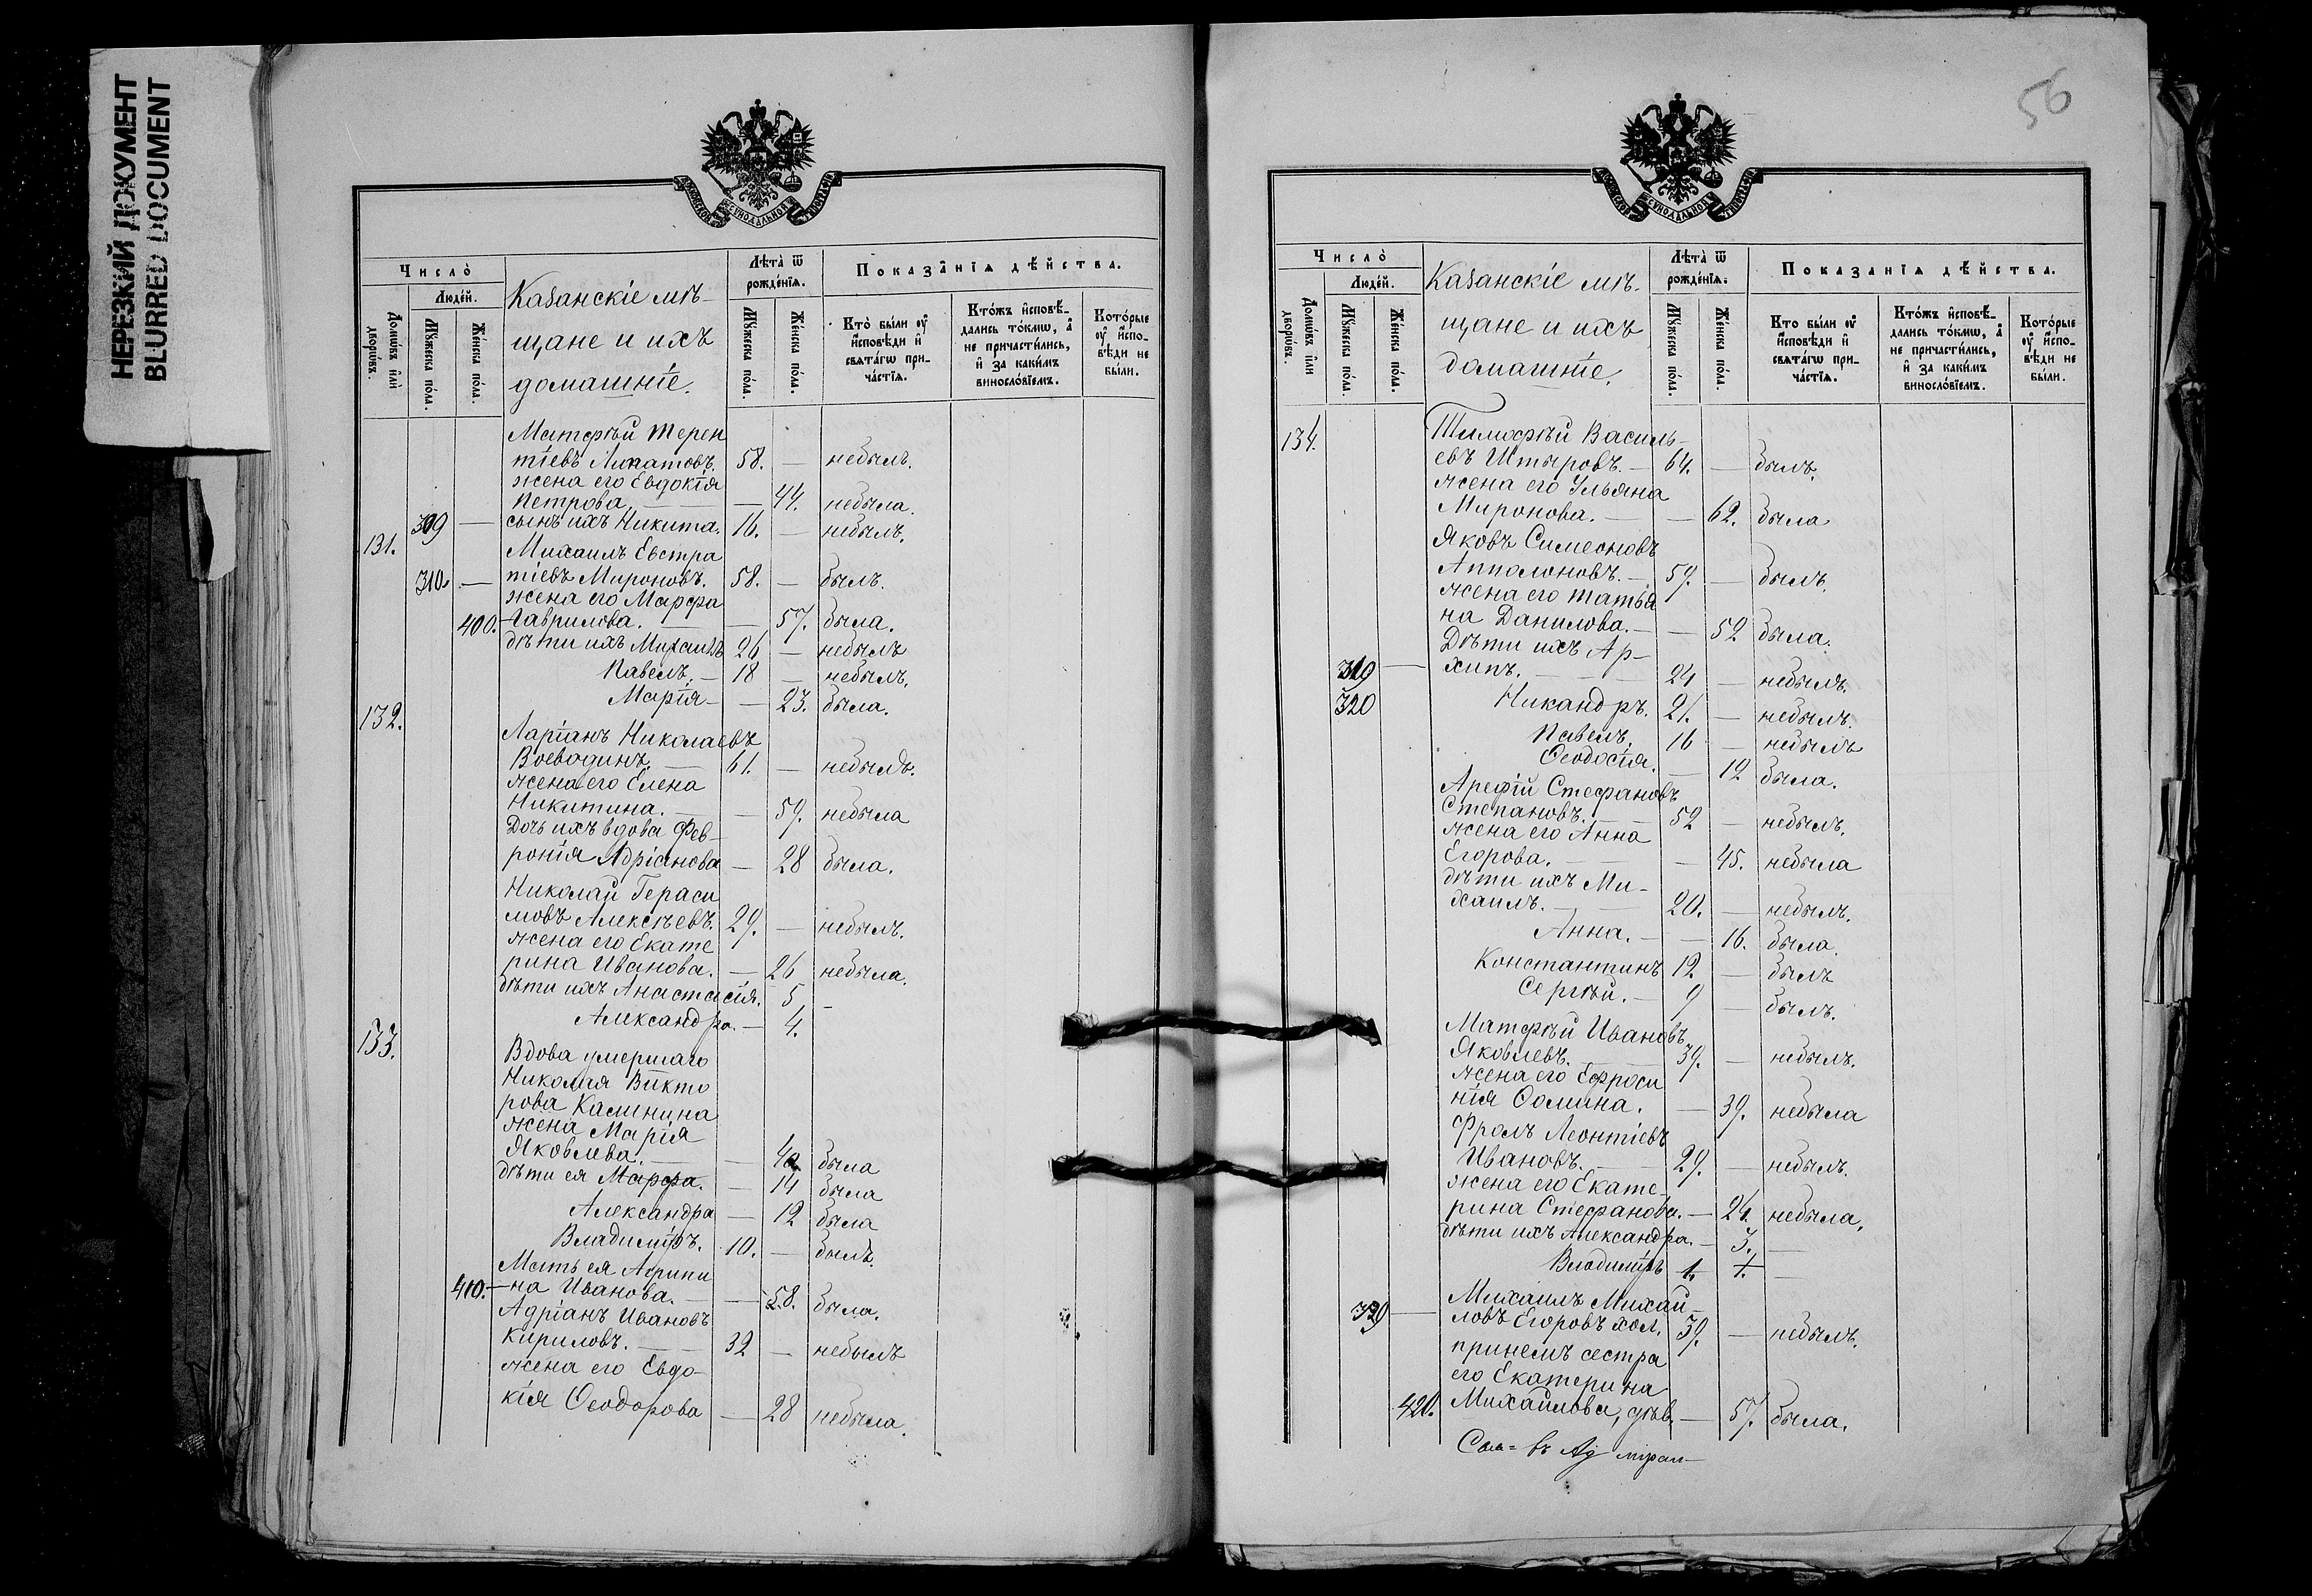 НЕРЕЗКИЙ ДОКУМЕНТ
BLURRED DOCUMENT
МОСКОВСКОЙ СѴНОДАЛЬНОЙ ТИПОГРАФІИ
Число̀
Лѣта̀ ѿ рожде́нїѧ.
Показа̑нїѧ дѣ́йства.
Домѡ́въ и҆лѝ дворѡ́въ.
Люде́й.
Мꙋ́жеска по́ла.
Же́нска по́ла.
Казанскіе мѣ-
щане и ихъ
домашніе.
Мꙋ́жеска по́ла.
Же́нска по́ла.
Кто̀ бы́ли ᲂу҆ и҆сповѣ́ди и҆ свѧта́гѡ при-ча́стїѧ.
Кто́жъ и҆сповѣ́-дались то́кмѡ, а҆ не причасти́лись, и҆ за каки́мъ винослові́емъ.
Кото́рые ᲂу҆ и҆спо-вѣ́ди не бы́ли.
Матѳѣй Терен
тіевъ Липатовъ. 58. — небылъ.
жена его Евдокія
Петрова. — 44. небыла.
309 — сынъ ихъ Никита. 16. — небылъ.
131. Михаилъ Евстра
310. — тіевъ Мироновъ. 58. — былъ.
жена его Марфа
400. Гаврилова. — 57. была.
дѣти ихъ Михаилъ 26 — небылъ
Павелъ. — 18 — небылъ.
Марія — — 23. была.
132. Ларіанъ Николаевъ
Воеводинъ. — 61. — небылъ.
жена его Елена
Никитина. — — 59. небыла
Дочь ихъ вдова Фев-
ронія Адріанова — 28 была.
Николай Гераси
мовъ Алексѣевъ. 29. — небылъ.
жена его Екате
рина Иванова. — 26 небыла.
дѣти ихъ Анастасія. 5 —
Александра. — 4.
133. Вдова умершаго
Николая Викто
рова Калинина
жена Марія
Яковлева. — — 40 была
дѣти ея Марфа. — 14 была
Александра — 12 была
Владиміръ. 10. — былъ.
Мать ея Агрипи
410. — на Иванова. — — 58. была.
Адріанъ Ивановъ
Кириловъ. — 32 — небылъ
жена его Евдо-
кія Ѳеодорова — 28 небыла.
56
МОСКОВСКОЙ СѴНОДАЛЬНОЙ ТИПОГРАФІИ
Число̀
Лѣта̀ ѿ рожде́нїѧ.
Показа̑нїѧ дѣ́йства.
Домѡ́въ и҆лѝ дворѡ́въ.
Люде́й.
Мꙋ́жеска по́ла.
Же́нска по́ла.
Казанскіе мѣ-
щане и ихъ
домашніе.
Мꙋ́жеска по́ла.
Же́нска по́ла.
Кто̀ бы́ли ᲂу҆ и҆сповѣ́ди и҆ свѧта́гѡ при-ча́стїѧ.
Кто́жъ и҆сповѣ́-дались то́кмѡ, а҆ не причасти́лись, и҆ за каки́мъ винослові́емъ.
Кото́рые ᲂу҆ и҆спо-вѣ́ди не бы́ли.
134. Тимофѣй Василь-
евъ Штыровъ. — 64. — былъ.
жена его Ульяна
Миронова. — — 62. была
Яковъ Симеоновъ
Апполоновъ. — 59. — былъ.
жена его Татья
на Данилова. — — 52 была.
Дѣти ихъ Ар-
319 — хипъ. — 24 — небылъ.
320 Никандръ. 21. — небылъ.
Павелъ. 16 — небылъ
Ѳеодосія. — 12 была.
Арефій Стефановъ
Степановъ. — 52 — небылъ.
жена его Анна
Егорова. — — 45. небыла
дѣти ихъ Ми-
хаилъ. — 20. — небылъ.
Анна. — — 16. была.
Константинъ 12. — былъ
Сергѣй. — 9 — былъ.
Матѳѣй Ивановъ
Яковлевъ. — 39. — небылъ.
жена его Ефроси
нія Ѳомина. — 39. небыла
Фролъ Леонтіевъ
Ивановъ. — 29. — небылъ.
жена его Екате-
рина Стефанова. — 24. небыла.
дѣти ихъ Александра. — 3. —
Владиміръ 1. —
Михаилъ Михай-
329 — ловъ Егоровъ хол. 39. — небылъ.
принемъ сестра
его Екатерина
420. Михайлова, дѣв. — 57. была.